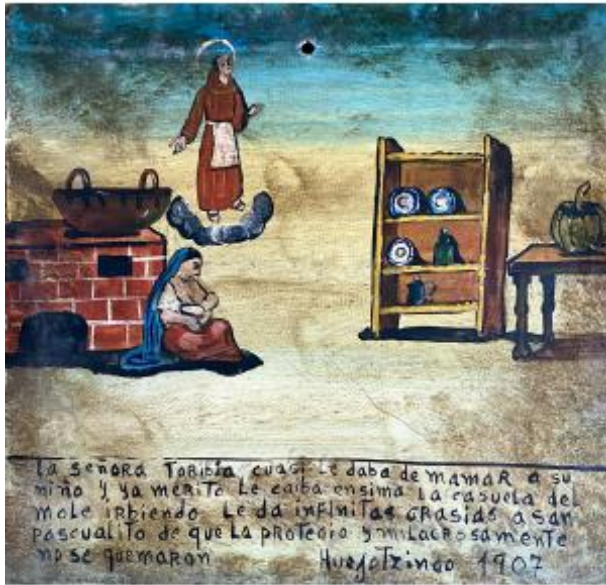 la SEÑORA TORIBIA cuasi le daba de mamar a su
niño y ya merito le caiba ensima la casuela del
mole irbiendo Le da infinitas GRasias a san
Pascualito de que la protegio y milagrosamente
no se quemaron Huejotzingo 1907